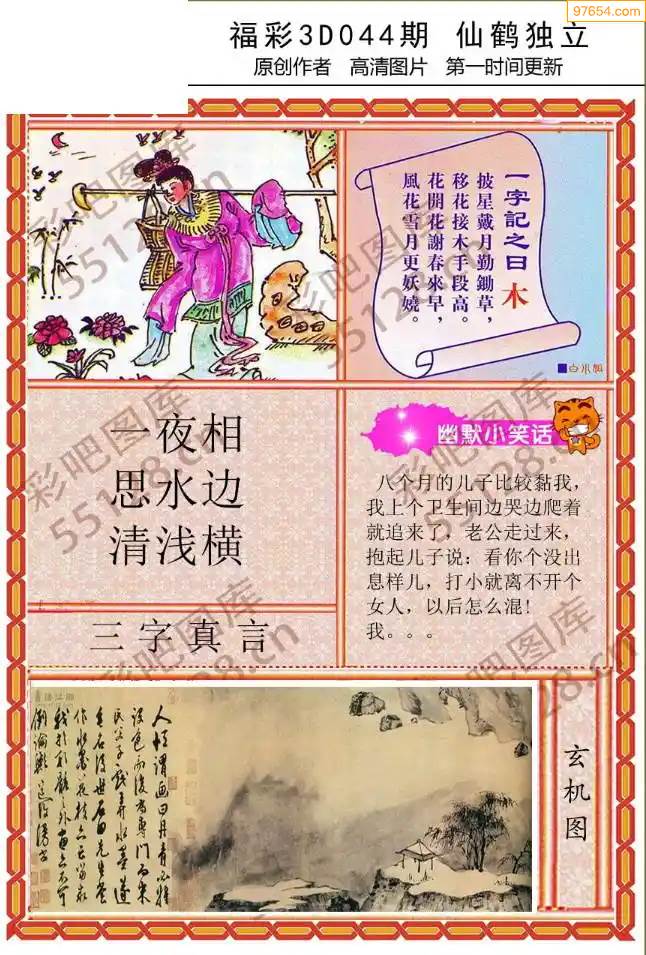 97654.com
福彩3D044期 仙鹤独立
原创作者 高清图片 第一时间更新
一字記之曰 木
披星戴月勤鋤草，
移花接木手段高。
花開花謝春來早，
風花雪月更妖嬈。
■白小姐
一夜相
思水边
清浅横
三字真言
幽默小笑话
八个月的儿子比较黏我，
我上个卫生间边哭边爬着
就追来了，老公走过来，
抱起儿子说：看你个没出
息样儿，打小就离不开个
女人，以后怎么混！
我。。。
玄机图
彩吧图库
55128.cn
彩吧图库
55128.cn
彩吧图库
55128.cn
彩吧图库
55128.cn